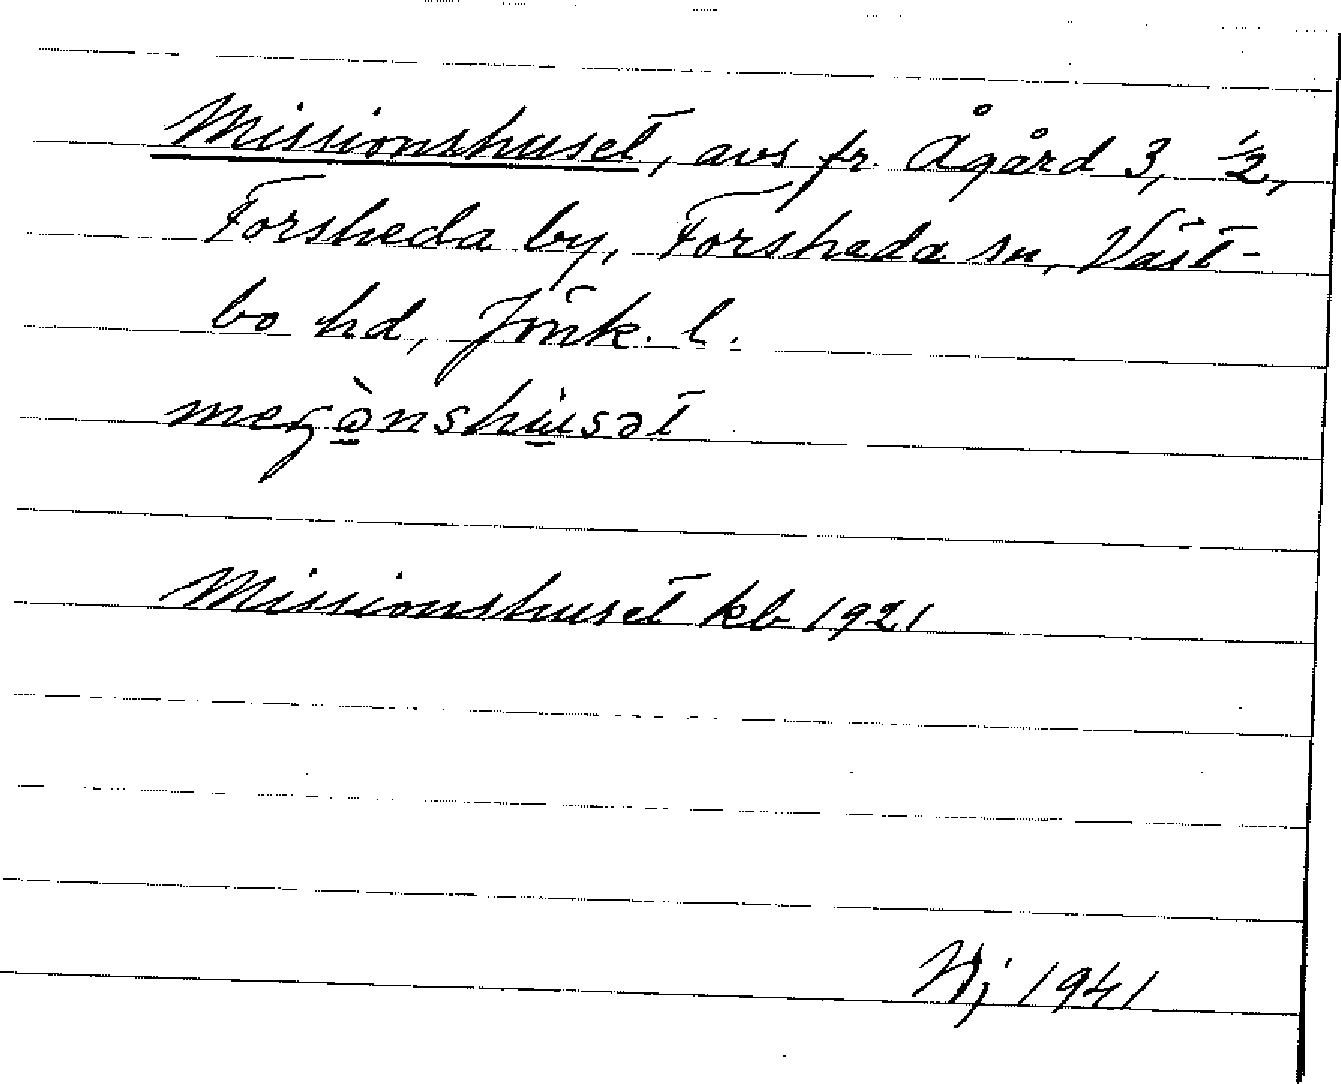 Missionshuset, avs fr. Ågård 3, 1/2,
Forsheda by, Forsheda sn, Väst-
bo hd, Jönk. l.
Missionshuset kb 1921
Hj 1941